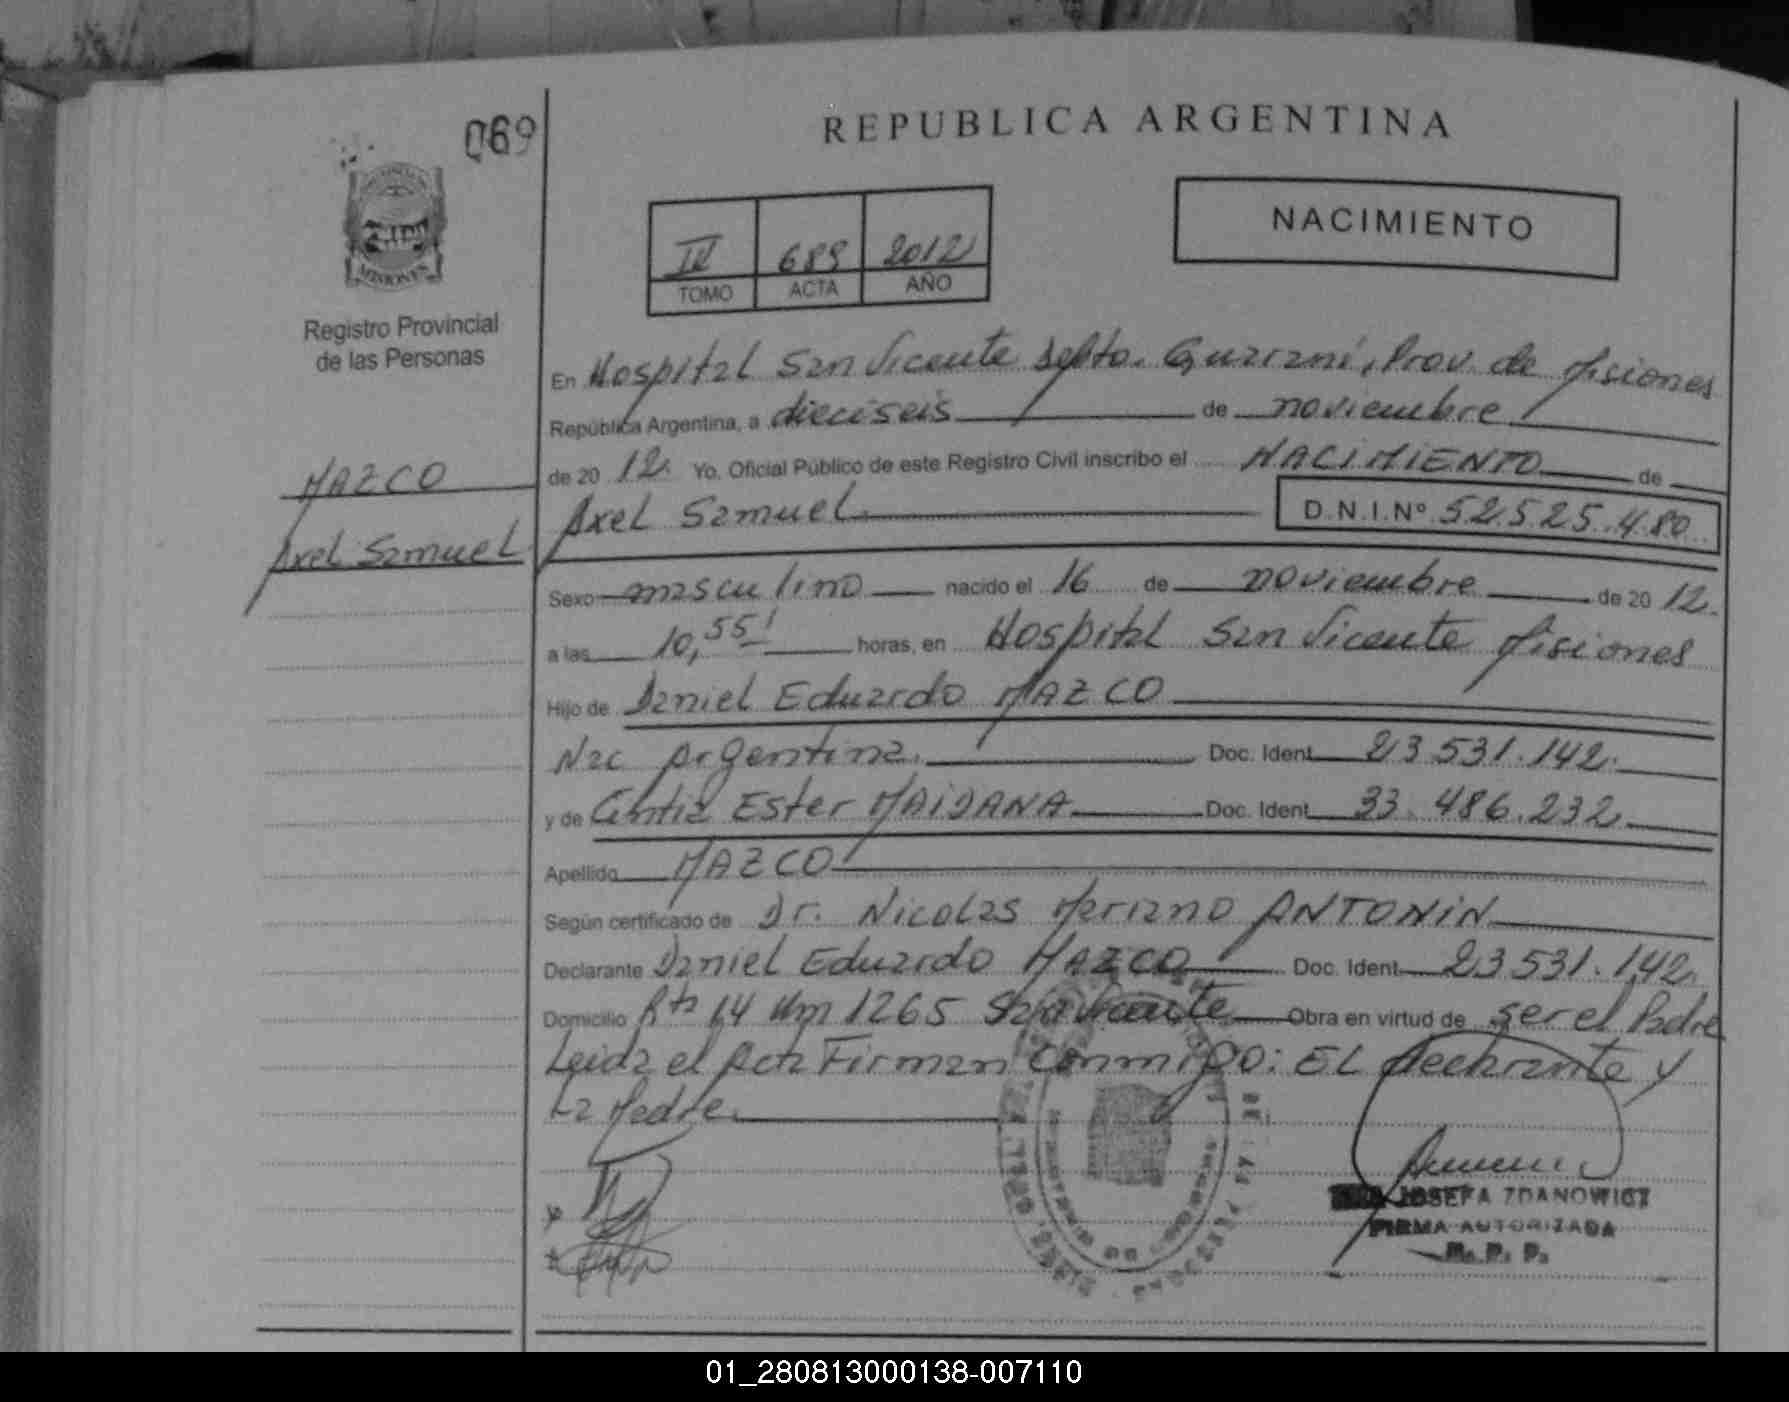 069
REPUBLICA ARGENTINA
NACIMIENTO
IV 689 2012
TOMO ACTA AÑO
MISIONES
Registro Provincial
de las Personas
En Hospital San Vicente Depto. Guaraní, Prov. de Misiones
República Argentina, a dieciseis de noviembre
de 2012. Yo, Oficial Público de este Registro Civil inscribo el NACIMIENTO de
MAZCO
Axel Samuel
Axel Samuel D.N.I.Nº 52.525.480
Sexo masculino nacido el 16 de noviembre de 2012.
a las 10,55' horas, en Hospital San Vicente Misiones
Hijo de Daniel Eduardo MAZCO
Nac Argentina. Doc. Ident. 23531.142.
y de Cintia Ester MAIDANA Doc. Ident. 33.486.232
Apellido MAZCO
Según certificado de Dr. Nicolas Mariano ANTONIN
Declarante Daniel Eduardo MAZCO Doc. Ident. 23531.142.
Domicilio Rta 14 Km 1265 San Vicente Obra en virtud de ser el Padre
Leida el Acta Firman conmigo: EL declarante y
La Madre.
JOSEFA ZDANOWICZ
FIRMA AUTORIZADA
R. P. P.
01_280813000138-007110